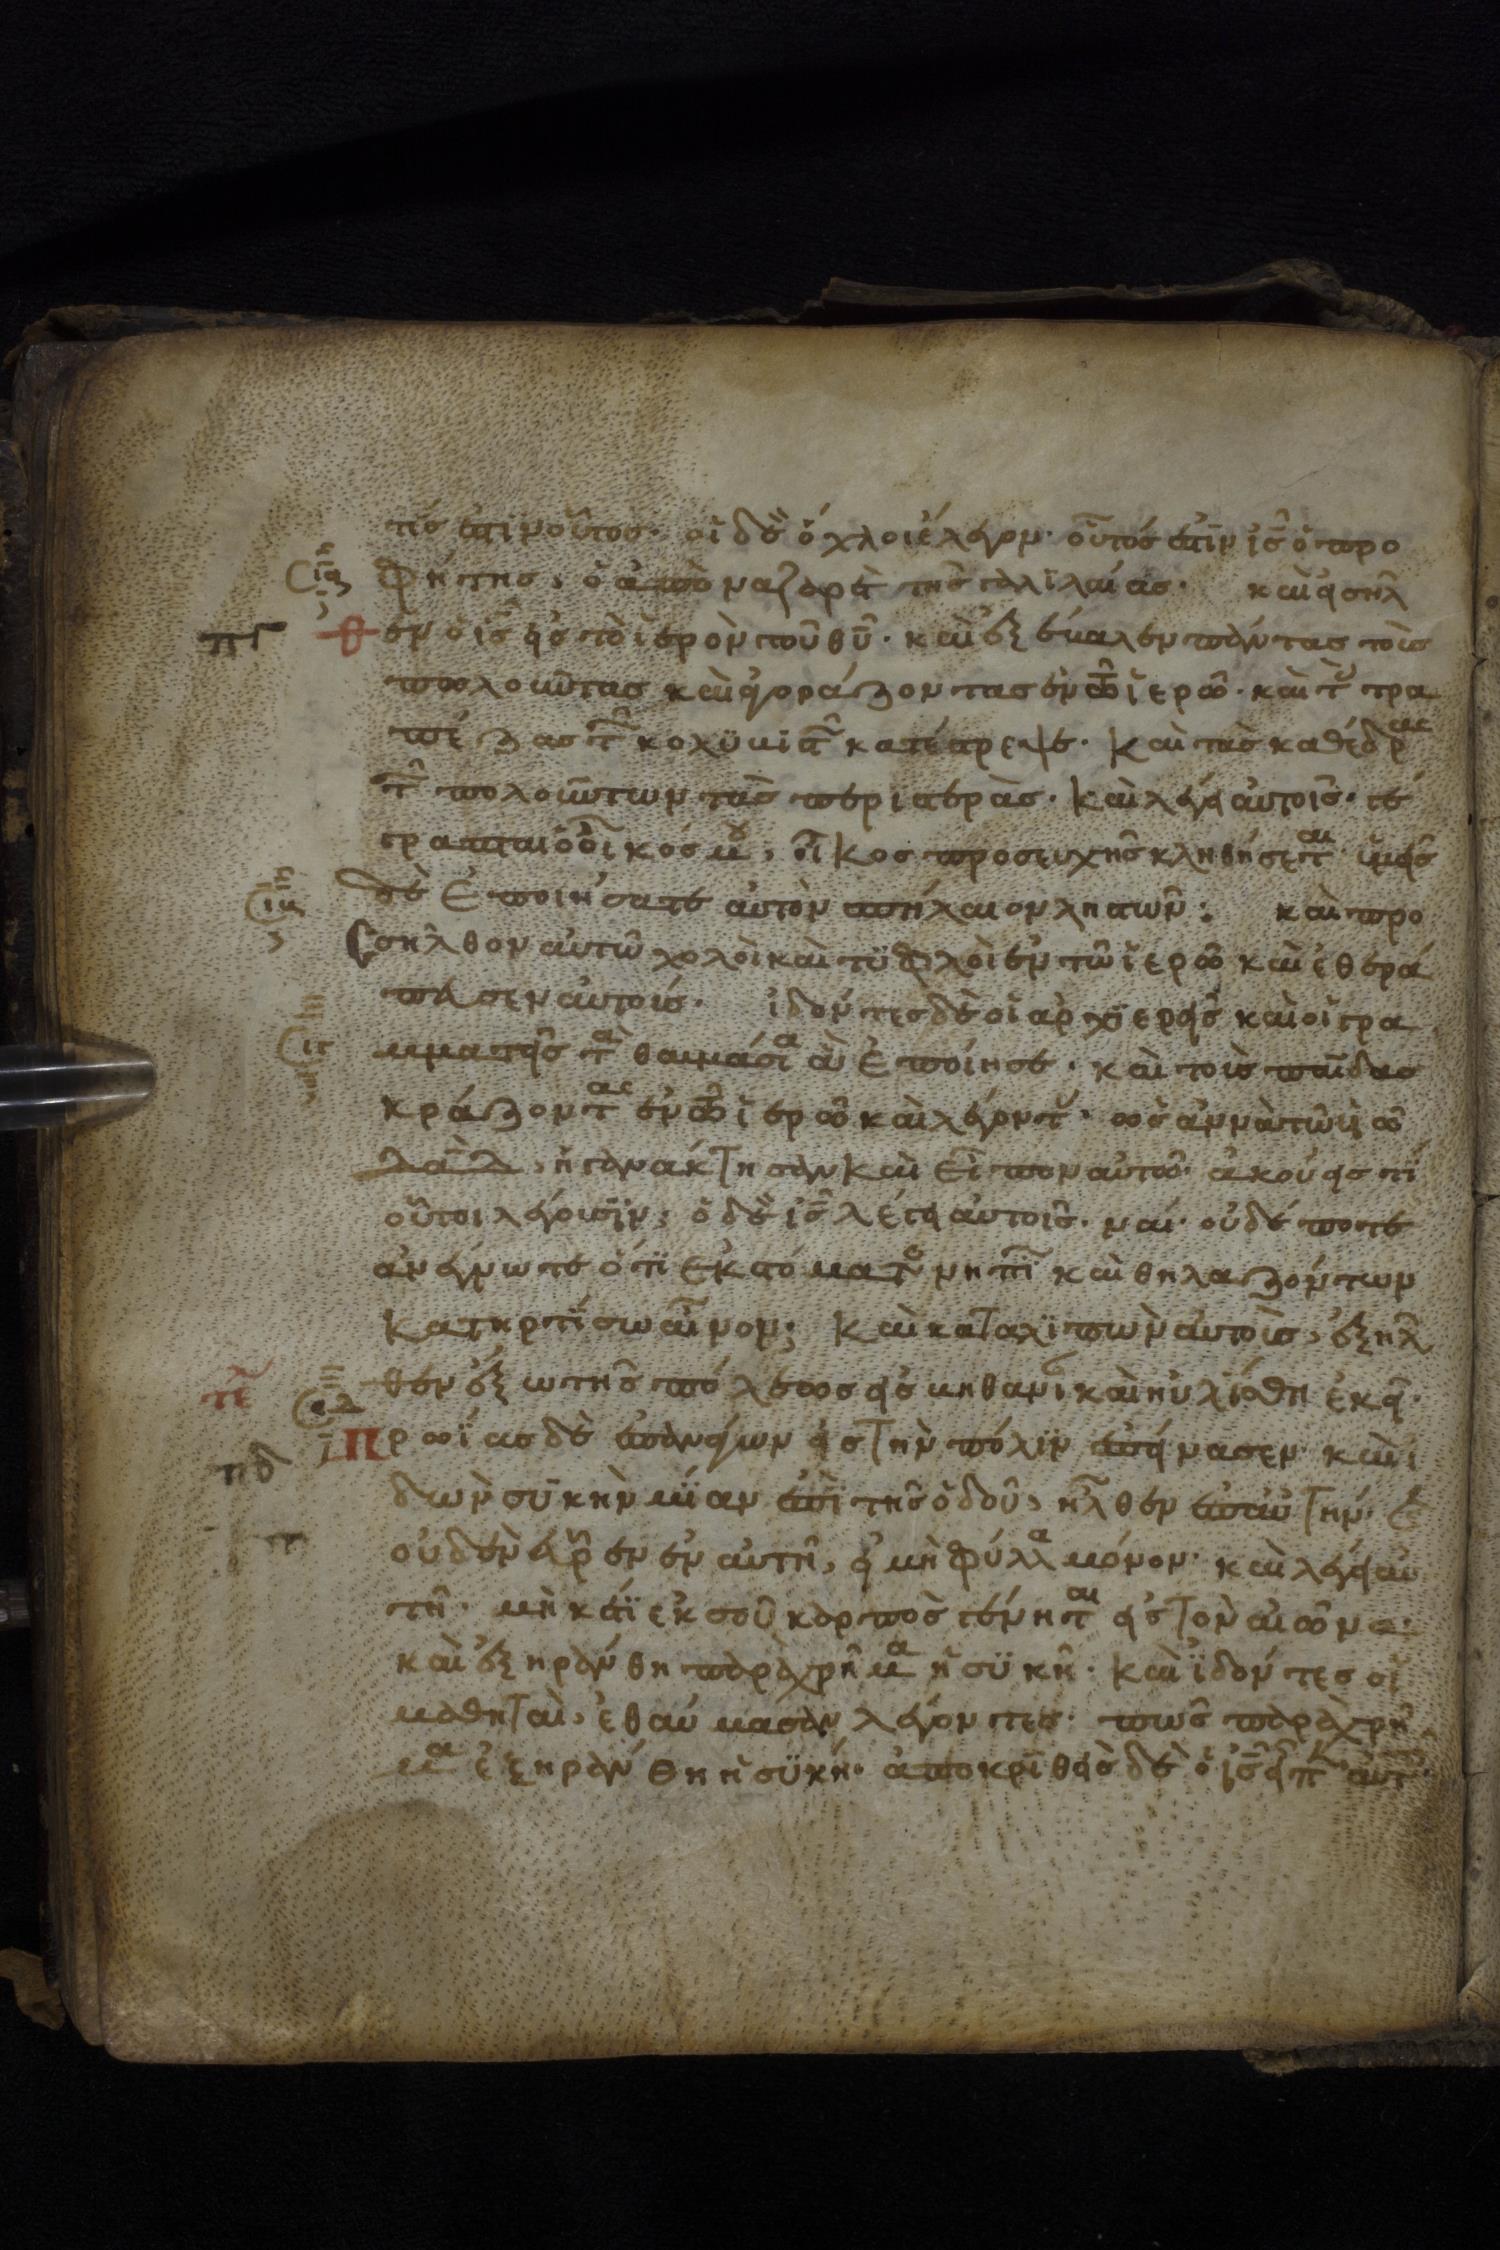 τίς ἐστϊν οὗτος· οἱ δὲ ὄχλοι ἔλεγον· οὗτός ἐστϊν ἰς̅ ὁ προ
φήτης, ὁ ἀπὸ ναζαρὲτ τῆς γαλϊλαίας· καὶ εἰσῆλ
πγ θεν ὁ ις̅ εἰς τὸ ἱερὸν τοῦ θυ̅· καὶ ἐξέβαλεν πάντας τοὺς
πωλοῦντας καὶ ἀγοράζοντας ἐν τῶ ἱερῶ· καὶ τ τρα
πέζας τ κολϋβϊστ κατέστρεψε· καὶ τὰς καθέδρας
τ πολούντων τὰς περιστεράς· καὶ λέγει αὐτοῖς· γέ
γραπται ὁ οἶκός μου, οἶκος προσευχῆς κληθήσεται· ὑμεῖς
δὲ ἐποιήσατε αὐτὸν σπήλαιον ληστῶν: καὶ προ
σῆλθον αὐτῶ χολοὶ καὶ τϋφλοὶ ἐν τῶ ἱερῶ καὶ ἐθερά
πευσεν αὐτούς· ἰδόντες δὲ οἱ ἀρχϊερεῖς καὶ οἱ γρα
μματεῖς τὰ θαυμάσια ἃ ἐποίησε· καὶ τοὺς παῖδας
κράζοντας ἐν τῶ ἱερῶ καὶ λέγοντ· ὡσαννὰ τῶ ὑιῶ
δαδ̅, ἠγανάκτησαν καὶ εἶπον αὐτῶ· ἀκούεις τί
οὗτοι λέγουσϊν; ὁ δὲ ἰς̅ λέγει αὐτοῖς· ναί· οὐδέποτε
ἀνέγνωτε ὅτϊ ἐκ στόματος νηπϊ καὶ θηλαζόντων
κατηρτίσω αἶνον; καὶ καταλϊπὼν αὐτοὺς, ἐξῆλ
θεν ἔξω τῆς πόλεως εἰς βηθανί καὶ ηὐλίσθη ἐκεῖ·
πδ Πρωΐας δὲ ἐπανάγων εἰς τὴν πόλϊν ἐπείνασεν· καὶ ἰ
δὼν σϋκὴν μίαν ἐπὶ τῆς ὁδοῦ, ἦλθεν ἐπ αὐτήν· καὶ
οὐδὲν εὗρεν ἐν αὐτῆ, εἰ μὴ φύλλα μόνον· καὶ λέγει αὐ
τῆ· μηκέτϊ ἐκ σοῦ καρπὸς γένηται εἰς τὸν αἰῶνα·
καὶ ἐξηράνθη παραχρῆμα ἡ σϋκῆ· καὶ ἰδόντες οἱ
μαθηταὶ, ἐθαύμασαν λέγοντες· πῶς παραχρῆ
μα ἐξηράνθη ἡ σϋκή· ἀποκρϊθεὶς δὲ ὁ ἰς̅ εἶπ αὐτ·